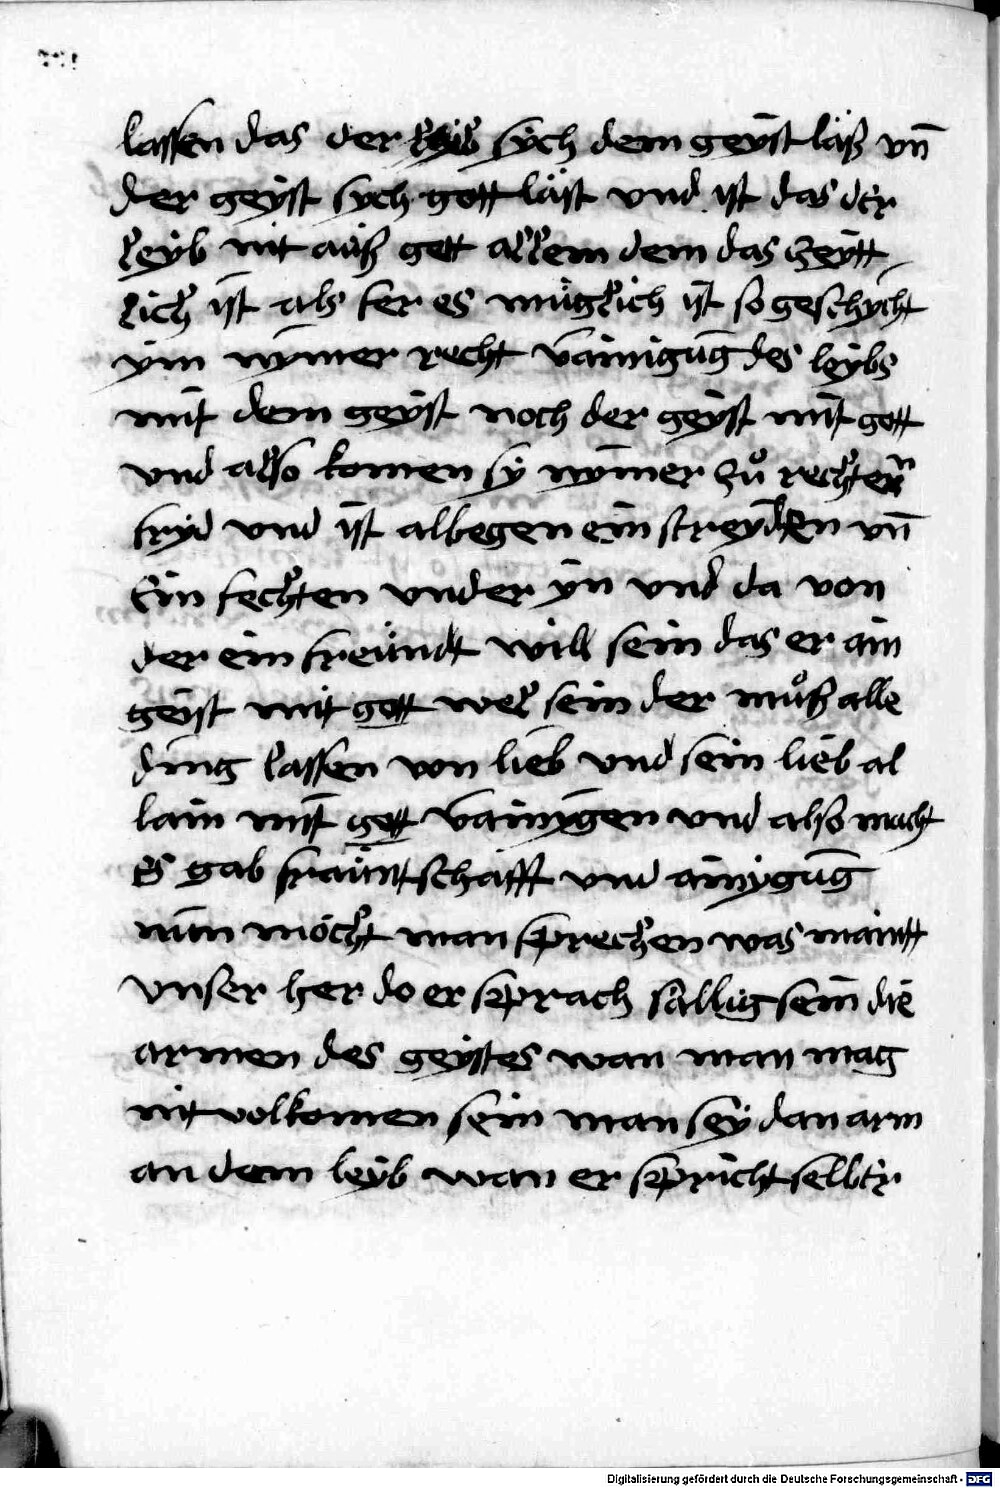 lassen das der leib sych dem geyst läß vn̄
der geyst sych gott läst vnd ist das der
leyb nit auß gett allem dem das zeytt
lich ist als fer es müglich ist so geschycht
ym nym̄er recht v̄ainigūg des leybs
mit dem geyst noch der geyst mit gott
vnd also komen sy nym̄er zuͦ rechter
fryd vnd ist albegen ein streyden vn̄
Ein fechten vnder yn vnd da von
der ein freündt will sein das er ain
geyst mit gott wel sein der muͦß alle
ding lassen von lieb vnd sein lieb al
lain mit gott v̄ainygen vnd also macht
es gab fraüntschafft vnd ainygūg
nun möcht man sprechen was maintt
vnser her do er sprach sällig sein die
armen des geystes wan man mag
nit volkomen sein man sey dan arm
an dem leyb wan er spricht selbtr
Digitalisierung gefördert durch die Deutsche Forschungsgemeinschaft - DFG